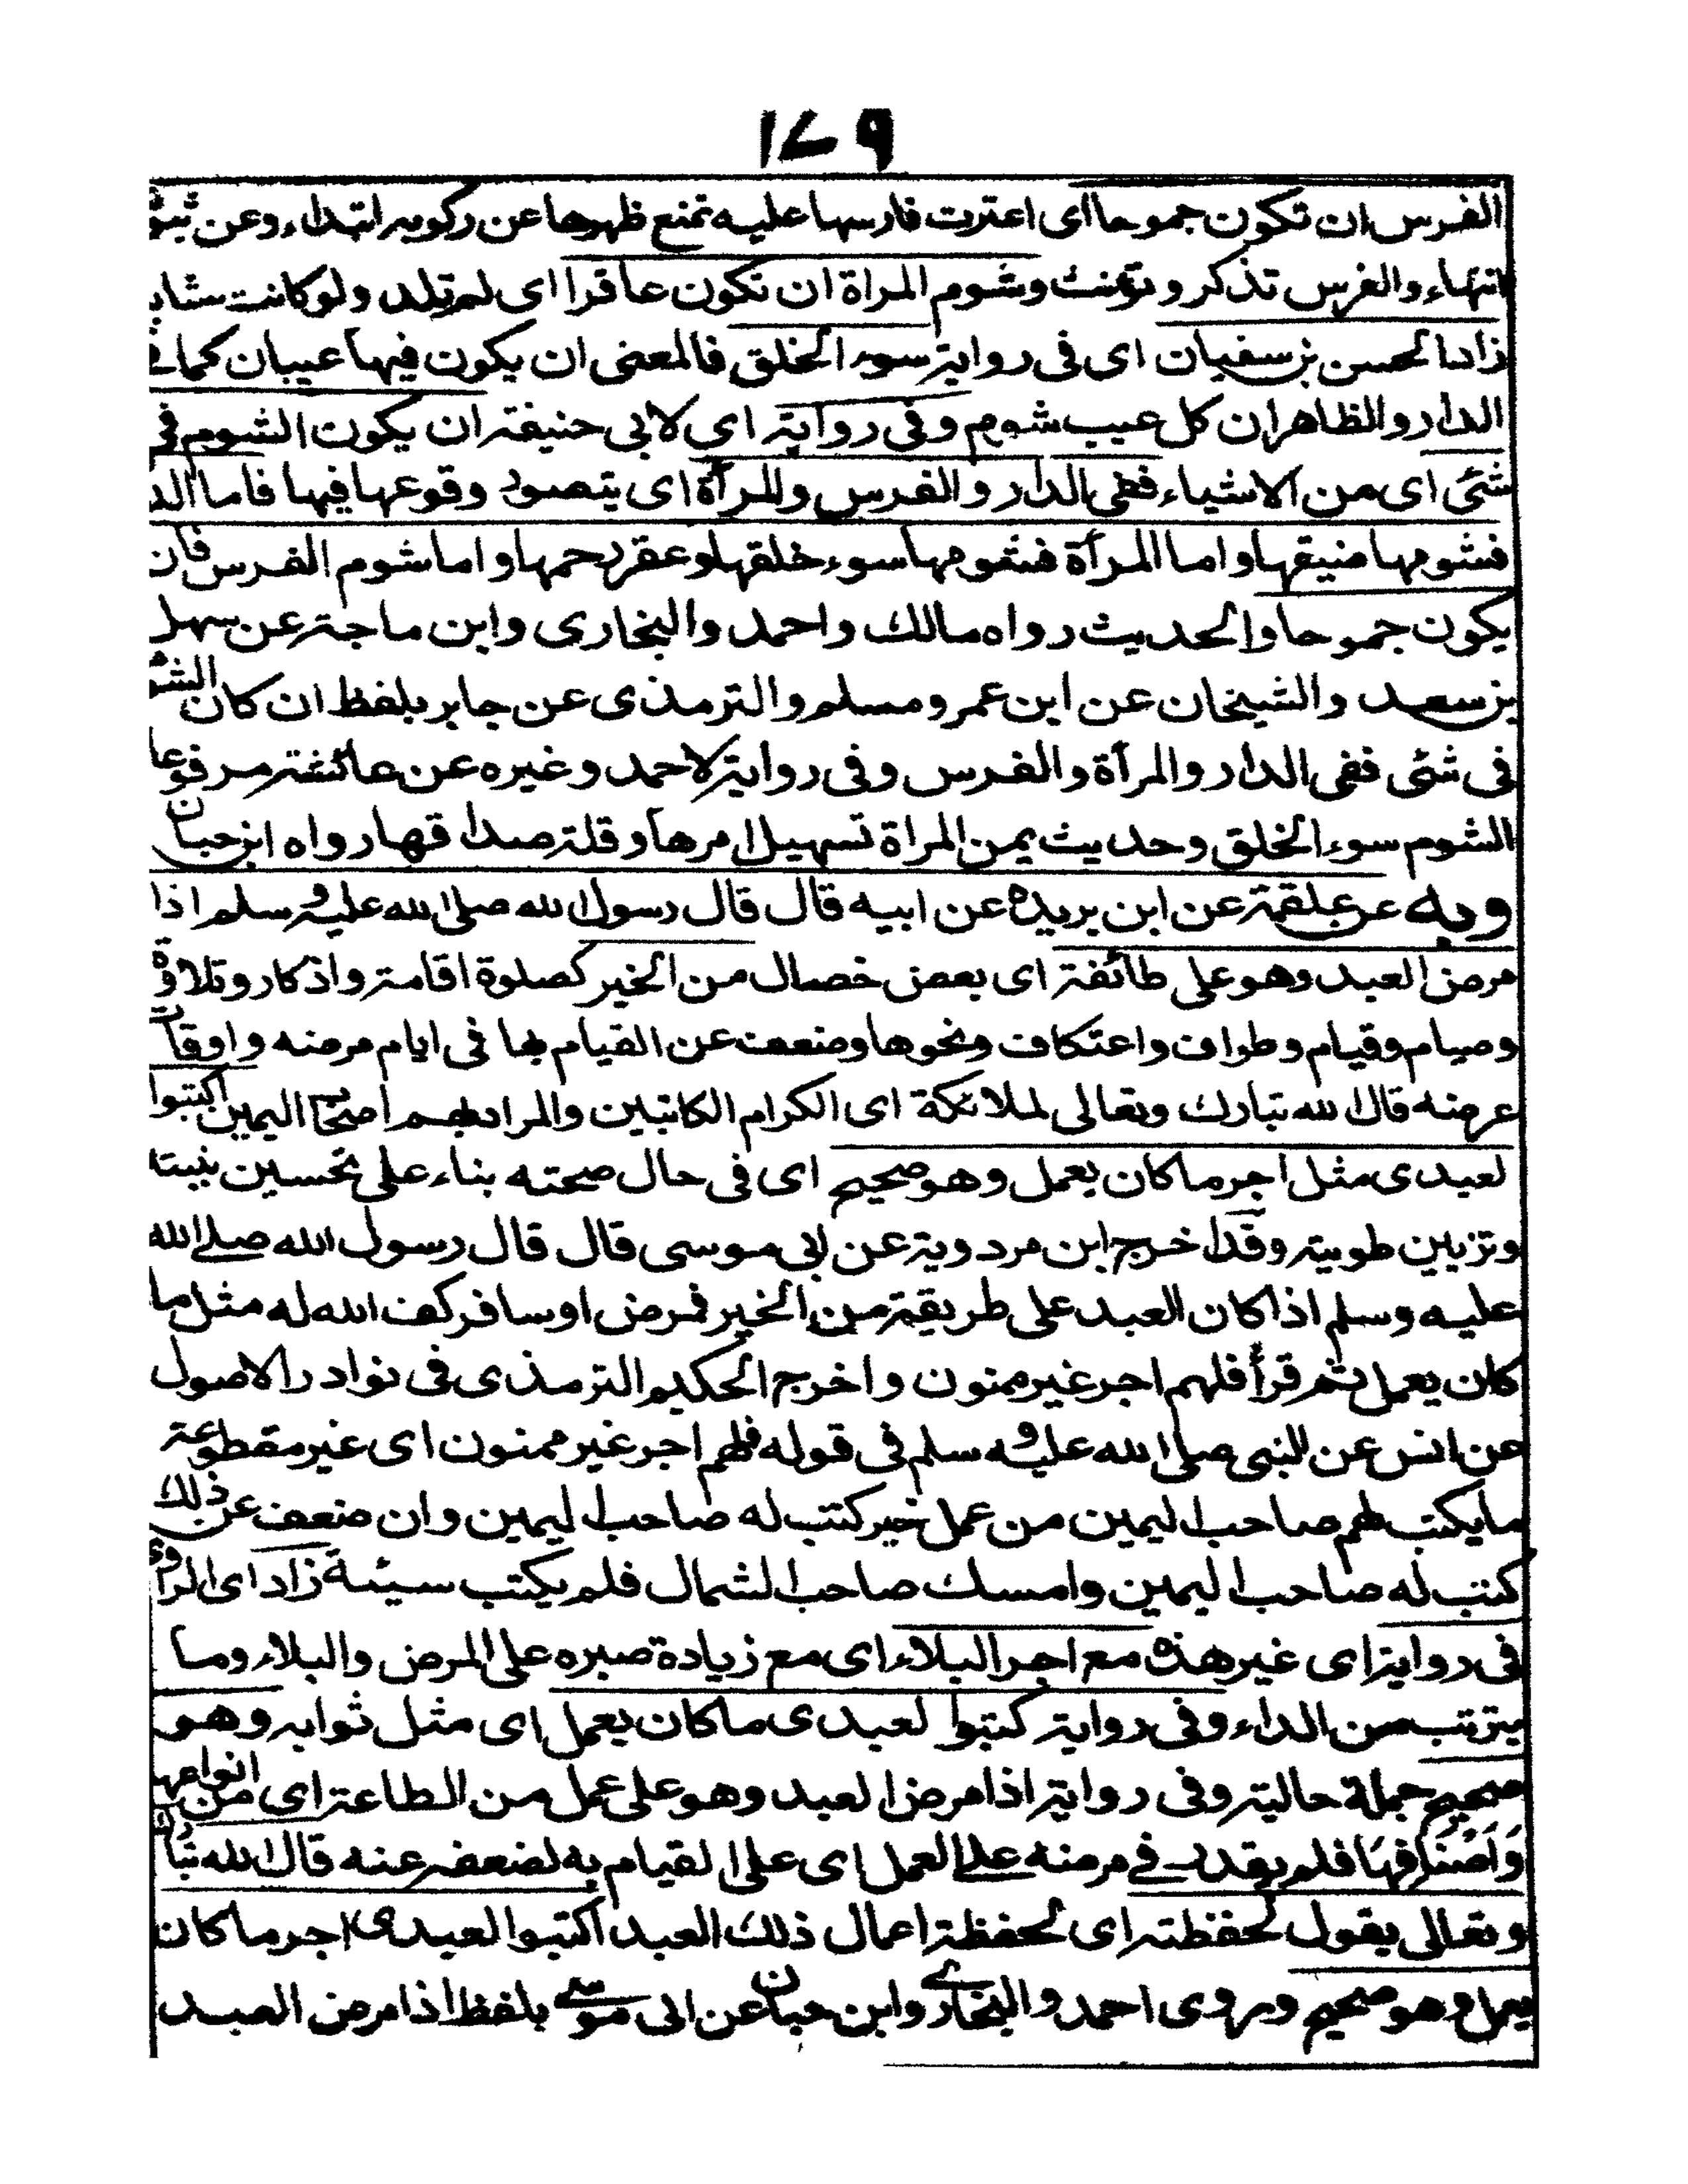 ١٧٩
الفرس ان تكون جموحا اى اعترت فارسها عليه تمنع ظهرها عن ركوبه ابتداء وعن
انتهاء والفرس تذكر وتؤنث وشوم المراة ان تكون عاقرا اى لم تلد ولو كانت شابة
زاد الحسن بن سفيان اى فى رواية سوء الخلق فالمعنى ان يكون فيها عيبان كما فى
الدار والظاهر ان كل عيب شوم وفى رواية اي لابى حنيفة ان يكون الشوم فى
شئى اى من الاشياء ففى الدار والفرس والمرأة اى يتصور وقوعها فيها فاما الد
فشومها ضيقها واما المرأة فشومها سوء خلقها وعقر رحمها واما شوم الفرس فان
يكون جموحا والحديث رواه مالك واحمد والبخارى وابن ماجة عن سهل
بن سعد والشيخان عن ابن عمر ومسلم والترمذى عن جابر بلفظ ان كان الشو
فى شئى ففى الدار والمرأة والفرس وفى رواية لاحمد وغيره عن عائشة مرفوعا
الشوم سوء الخلق وحديث يمن المراة تسهيل امرها وقلة صداقها رواه ابن حبان
وبه عن علقمة عن ابن بريدة عن ابيه قال قال رسول الله صلى الله عليه وسلم اذا
مرض العبد وهو على طائفة اى بعض خصال من الخير كصلوة اقامة واذكار وتلاوة
وصيام وقيام وطواف واعتكاف ونحوها وضعف عن القيام بها فى ايام مرضه واوقات
عرضه قال الله تبارك وتعالى لملائكة اى الكرام الكاتبين والمراد بهم اصحٰب اليمين اكتبوا
لعبدى مثل اجر ما كان يعمل وهو صحيح اى فى حال صحته بناء على تحسين نيته
وتزيين طويته وقد اخرج ابن مردوية عن ابى موسى قال قال رسول الله صلى الله
عليه وسلم اذا كان العبد على طريقة من الخير فمرض او سافر كتب الله له مثل ما
كان يعمل ثم قرأ فلهم اجر غير ممنون واخرج الحكيم الترمذى فى نوادر الاصول
عن انس عن النبى صلى الله عليه وسلم فى قوله فلهم اجر غير ممنون اى غير مقطوعة
ما يكتب لهم صاحب اليمين من عمل خير كتب له صاحب اليمين وان ضعف عن ذلك
كتب له صاحب اليمين وامسك صاحب الشمال فلم يكتب سيئة زاد اى الراوى
فى رواية اى غير هذه مع اجر البلاء اى مع زيادة صبره على المرض والبلاء وما
يترتب من الداء وفى رواية كتبوا لعبدى ما كان يعمل اى مثل ثوابه وهو
صحيح جملة حالية وفى رواية اذا مرض العبد وهو على عمل من الطاعة اي من انواعها
وَاَصْنَافِهَا فلم يقدر فے مرضه علے العمل اى على القيام به لضعفه عنه قال الله تبارك
وتعالى يقول لحفظته اى لحفظة اعمال ذلك العبد اكتبوا لعبدى اجر ما كان
يعمل وهو صحيح وروى احمد والبخارے وابن حبان عن ابى موسے بلفظ اذا مرض العبد